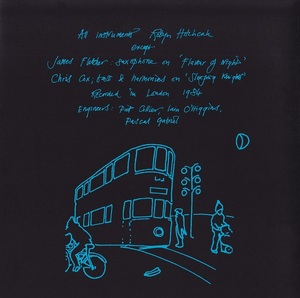 All instruments Robyn Hitchcock
except
James Fletcher: saxophone on 'Flavour of Night'
Chris Cox; bass & harmonies on 'Sleeping Knights'
Recorded in London 1984
Engineers: Pat Collier, Iain O'Higgins,
Pascal Gabriel